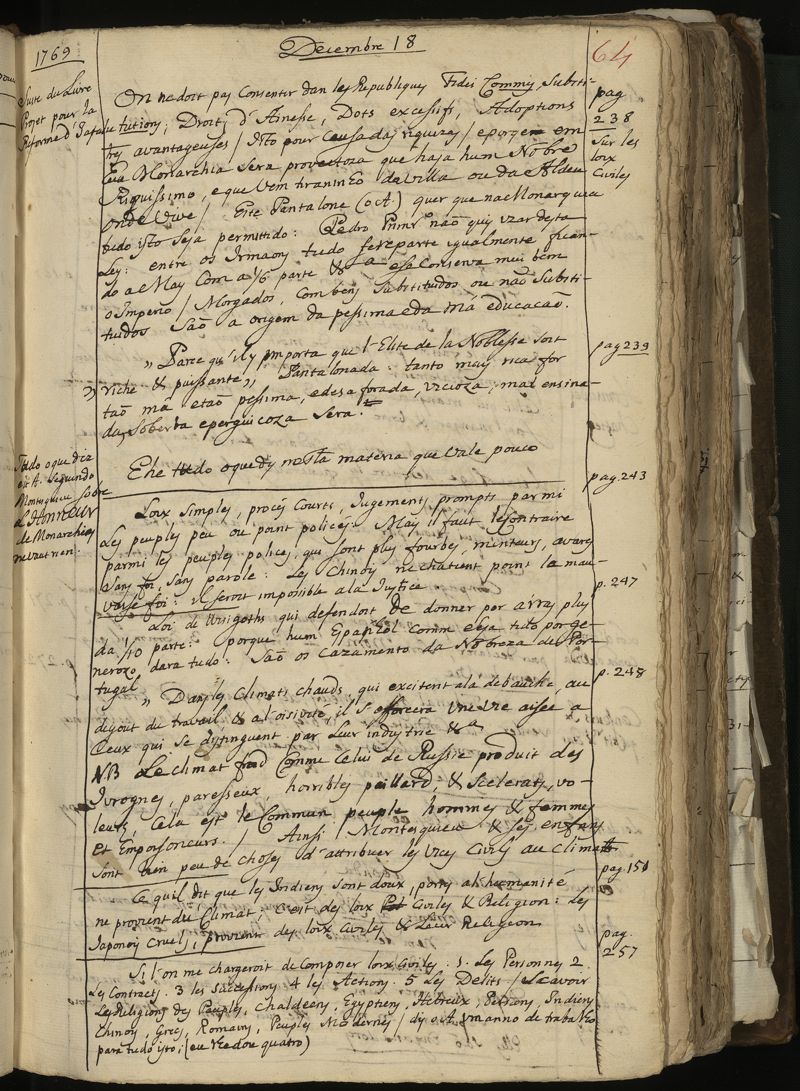 1769
Decembre 18
64
Suite du Livre
Projet pour la
Reforme d'Italie
On ne doit pas Consenter dan les Republiques Fidei Commis, Substi-
tutions, Droits d'Ainesse, Dots excessifs, Adoptions
pag
238
Sur les
loix
Civiles
tres avantageuses / isto pour Causa das riquezas / e porque em
hua Monarchia Sera proveitoza que haja hum Nobre
Riquissimo, e que bem tiranin Eo da Villa ou da Aldea
onde Vive / Este Pantalone (o A.) quer que na Monarquia
tudo isto Seja permittido: Pedro Primr.º não quis uzar desta
Ley: entre os Irmaons tudo se reparte igualmente fican-
do a May Com a 1/6 parte & a e se Conserva mui bem
o Imperio / Morgados, Com bens Substitudos ou não Substi-
tuidos São a origem da pessima e da má educacaõ.
„ Parce qu'il y importa que l'Elite de la Noblesse soit
riche & puissante „ Pantalonada: tanto mais rica for
pag 239
taõ má etaõ pessima, e desaforada, vicioza, mal ensina-
da, Soberba e perguicoza Sera.
Tudo o que diz
est A. Seguindo
Montesquieu Sobre
L'Honneur
de Monarchies
ne vaut rien.
Ehe tudo o que diz nesta materia que Vale pouco
Loix Simples, procés Courts, Jugements prompts parmi
pag. 243
Les peuples peu ou point policés. Mais il faut le Contraire
parmi les peuples polices, qui sont plus fourbes, menteurs, avares
Sans foi, Sans parole: Les Chinois ne chatient point la mau-
vaise foi: il seroit imposible a la Justice
p. 247
Loi de Wisigoths qui defendoit de donner por arras plus
da 1/10 parte: porque hum Espanhol Comme elle tudo por ge-
nerozo dara tudo: São os Cazamento da Nobreza de Por-
tugal
p. 248
„ Dans les Climats chauds, qui excitent a la debauche, au
degout du travail & a l'oisiveté, il s'efforcera une vie aisée a
Ceux qui se distinguent par leur industrie &a
NB Le climat froid Comme Celui de Russie produit des
Ivrognes, paresseux, horribles paillard, & Scelerats, vo-
leurs, Cela est le Commun peuple hommes & femmes
et Emposoneurs. / Ainsi Montesquieu & ses enfans
sont bien peu de choses d'attribuer les vices Civils au Climat
Ce qu'il dit que les Indiens Sont doux, portés a l'humanité
pag 151
ne provient du Climat: C'est des loix Civiles & Religion: Les
Japonois Cruels, provient des loix Civiles & Leur Religion
pag.
257
Si l'on me chargeroit de Composer loix Civiles: 1. Les Personnes 2
Les Contracts. 3 les Successions 4 les Actions. 5 Les Delits / Scavoir
Les Religions des Peuples, Chaldeens, Egyptiens, Hebreux, Persans, Indiens
Chinois, Grecs, Romains, Peuples Modernes / dis o A. um anno de trabalho
para tudo isto; (eu lhe dou quatro)